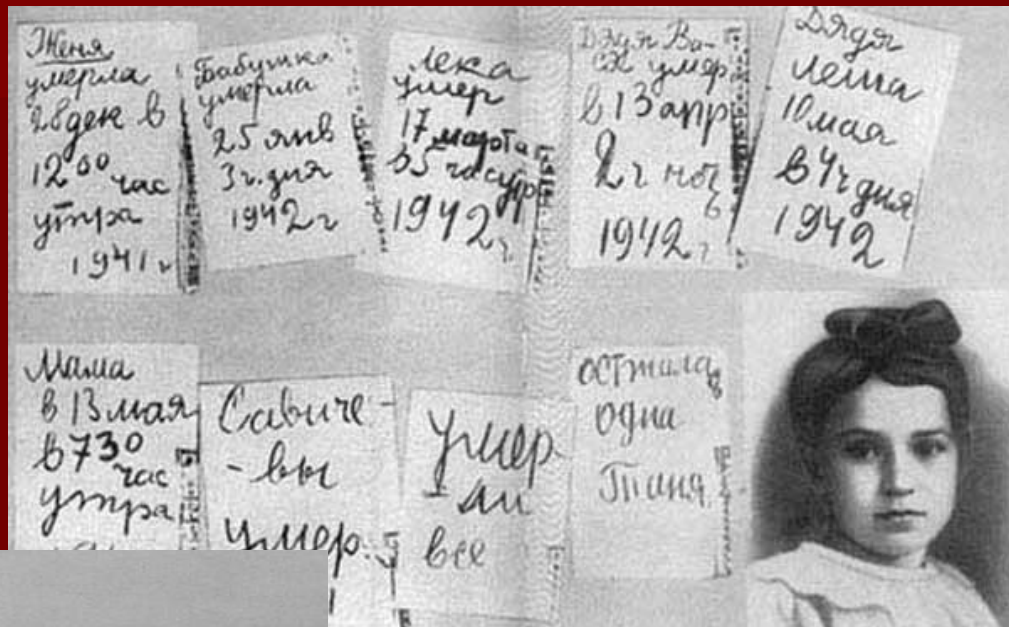 Женя
умерла
28 дек в
12 00 час
утра
1941 г
Бабушка
умерла
25 янв
3 ч. дня
1942 г
Лека
умер
17 марта
в 5 час утр
1942 г
Дядя Ва-
ся умер
в 13 апр
2 ч ноч
1942 г
Дядя
Леша
10 мая
в 4 ч дня
1942
Мама
в 13 мая
в 7 30
час
утра
Савиче-
-вы
умер
Умер
-ли
все
осталась
одна
Таня